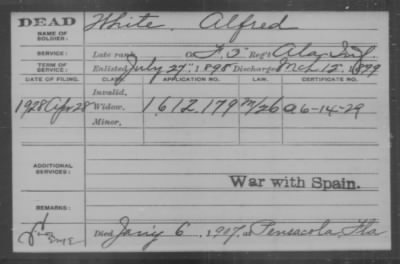 DEAD White, Alfred
NAME OF SOLDIER:
SERVICE: Late rank, Reg't Ala. Inf.
TERM OF SERVICE: Enlisted July 27", 1898 Discharged Mch 15", 1899
DATE OF FILING. CLASS. APPLICATION NO. LAW. CERTIFICATE NO.
Invalid.
1928 Apr 28 Widow. 1,612,179 M/26 a 6-14-29
Minor.
ADDITIONAL SERVICES: War with Spain.
REMARKS:
Died Jan'y 6, 1907, at Pensacola, Fla